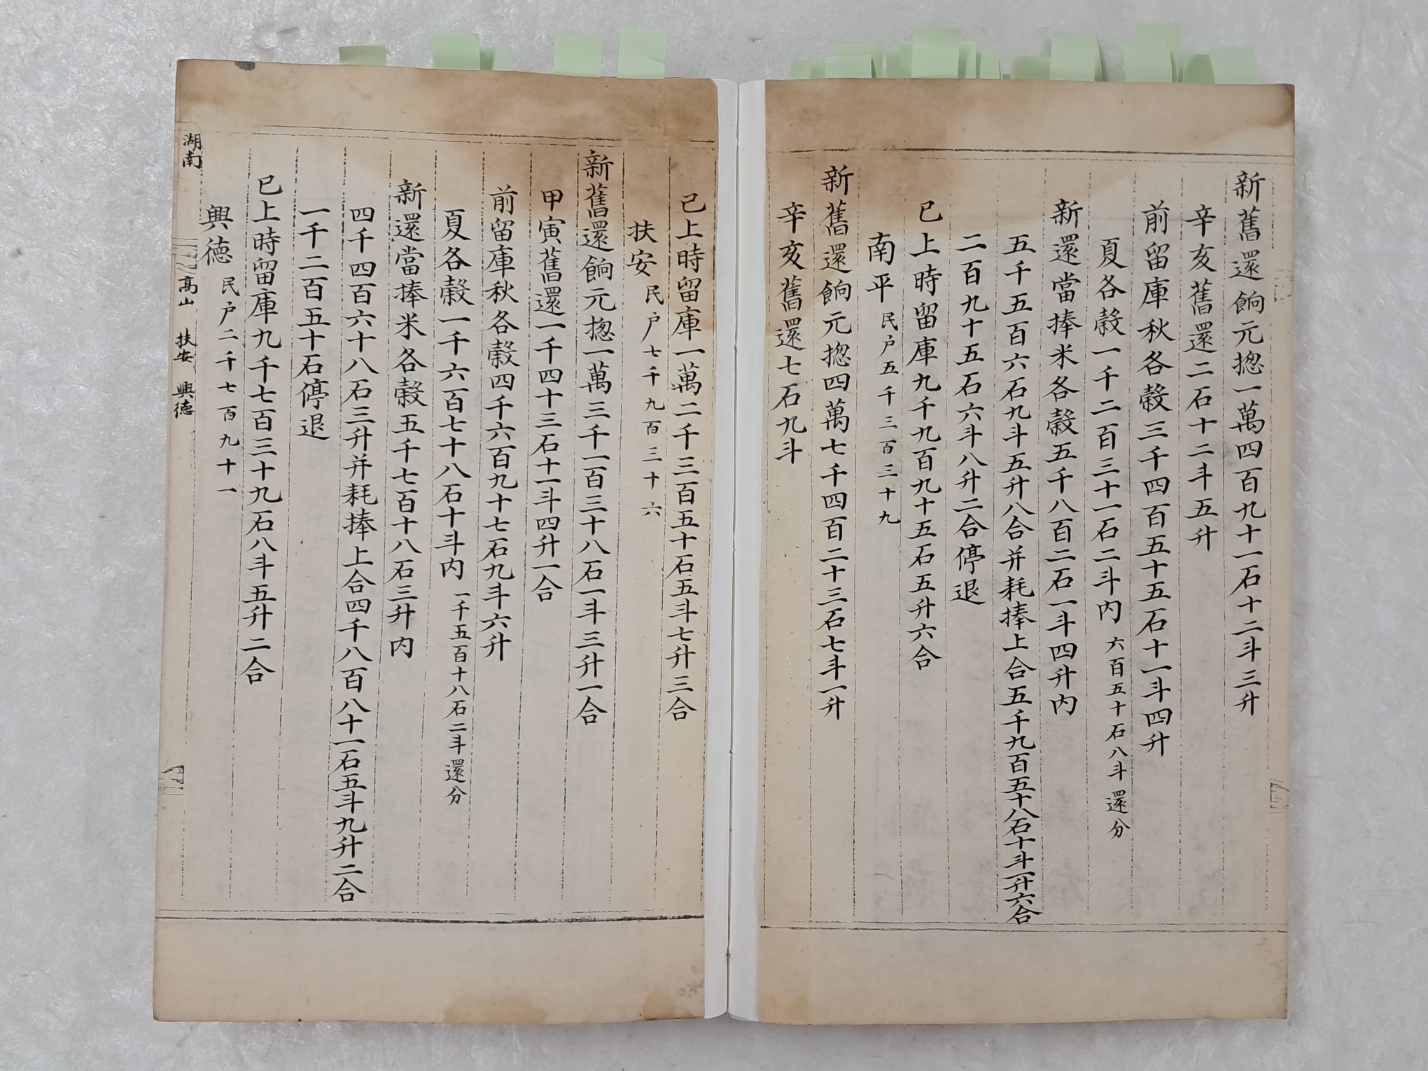 新舊還餉元摠一萬四百九十一石十二斗三升
辛亥舊還二石十二斗五升
前留庫秋各穀三千四百五十五石十一斗四升
夏各穀一千二百三十一石二斗內 六百五十石八斗還分
新還當捧米各穀五千八百二石一斗四升內
五千五百六石九斗五升八合并耗捧上合五千九百五十八石十斗一升六合
二百九十五石六斗八升二合停退
已上時留庫九千九百九十五石五升六合
南平 民户五千三百三十九
新舊還餉元摠四萬七千四百二十三石七斗一升
辛亥舊還七石九斗
已上時留庫一萬二千三百五十石五斗七升三合
扶安 民户七千九百三十六
新舊還餉元摠一萬三千一百三十八石一斗三升一合
甲寅舊還一千四十三石十一斗四升一合
前留庫秋各穀四千六百九十七石九斗六升
夏各穀一千六百七十八石十斗內 一千五百十八石二斗還分
新還當捧米各穀五千七百十八石三升內
四千四百六十八石三升并耗捧上合四千八百八十一石五斗九升二合
一千二百五十石停退
已上時留庫九千七百三十九石八斗五升二合
興德 民户二千七百九十一
湖南 高山 扶安 興德